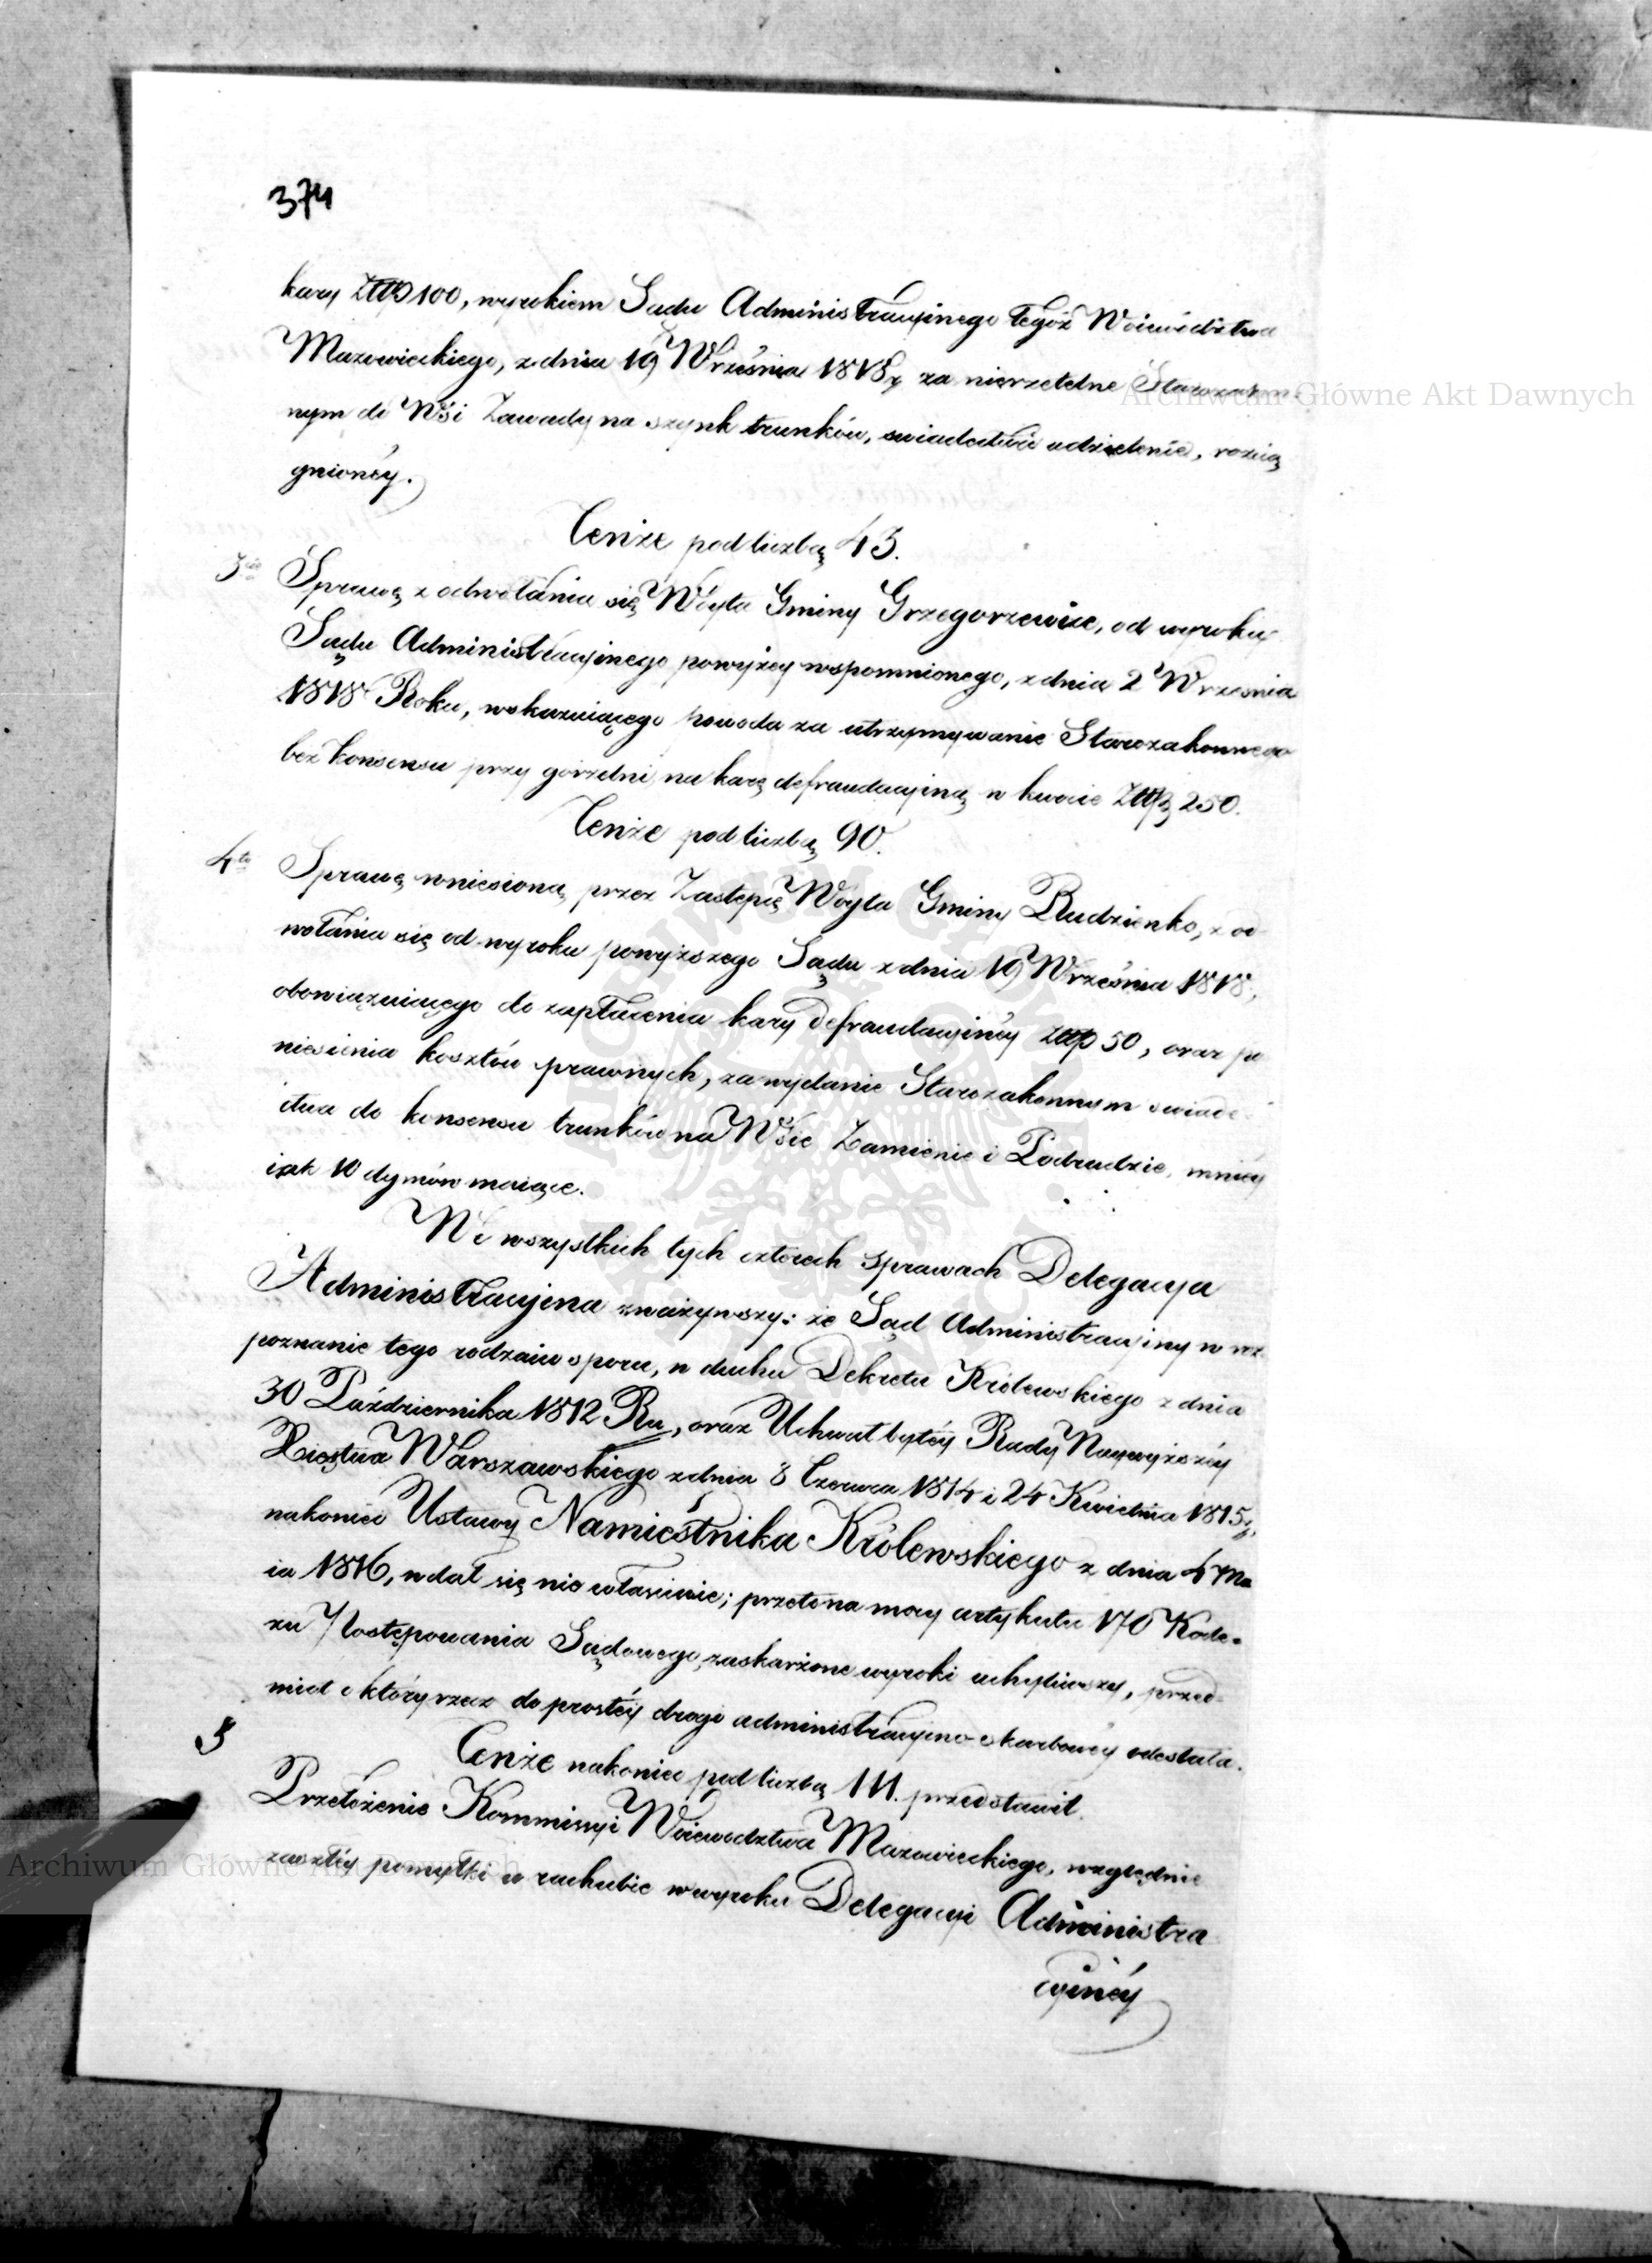 374
kary Złtp 100, wyrokiem Sądu Administracyinego tegóż Woiewództwa
Mazowieckiego, z dnia 19 Września 1818 r za nierzetelne Starozakon-
nym do Wsi Zawady na szynk trunków, swiadectwa udzielenie, rozcią
gnioney.
Tenże pod liczbą 43.
3cie Sprawę z odwołania się Wóyta Gminy Grzegorzewice, od wyroku
Sądu Administracyinego powyżey wspomnionego, z dnia 2 Września
1818 Roku, wskazuiącego powoda za utrzymywanie Starozakonnego
bez konsensu przy gorzelni, na karę defraudacyiną w kwocie Złtp 250.
Tenże pod liczbą 90.
4to Sprawę wniesioną przez Zastępcę Wóyta Gminy Rudzienko, z od
wołania się od wyroku powyższego Sądu z dnia 19 Września 1818,
obowiązuiącego do zapłacenia kary defraudacyiney Złtp 50, oraz po
niesienia kosztów prawnych, za wydanie Starozakonnym swiade
ctwa do konsensu trunków na Wsie Zamienie i Podrudzie, mniey
iak 10 dymów maiące.
We wszystkich tych czterech sprawach Delegacya
Administracyina zważywszy: że Sąd Administracyiny w roz
poznanie tego rodzaiu sporu, w duchu Dekretu Królewskiego z dnia
30 Października 1812 Ru, oraz Uchwał byłéy Rady Naywyższéy
Xięstwa Warszawskiego z dnia 8 Czerwca 1814 i 24 Kwietnia 1815 r,
nakoniec Ustawy Namiestnika Królewskiego z dnia 4 Ma
ia 1816, wdał się nie właściwie; przeto na mocy artykułu 170 Kode-
xu Postępowania Sądowego, zaskarżone wyroki uchyliwszy, przed-
miot o który rzecz do prostéy drogi administracyino-skarbowéy odesłała.
5 Tenże nakoniec pod liczbą 111. przedstawił
Przełożenie Kommissyi Woiewodztwa Mazowieckiego, względnie
zaszłéy pomyłki w rachubie w wyroku Delegacyi Administra
cyinéy
Archiwum Główne Akt Dawnych
Archiwum Główne Akt Dawnych